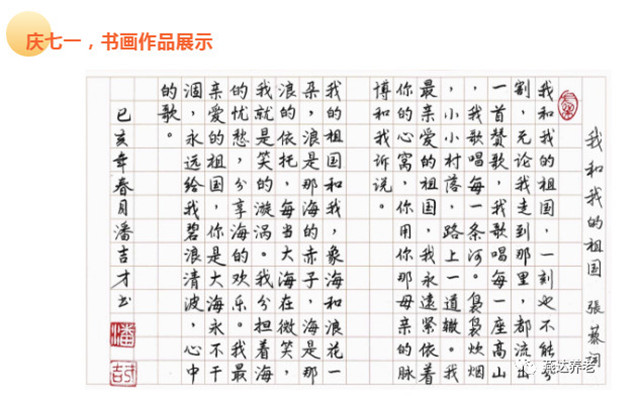 庆七一，书画作品展示
我和我的祖国 張藜词
我和我的祖国，一刻也不能分
割，无论我走到那里，都流出
一首赞歌，我歌唱每一座高山
，我歌唱每一条河。袅袅炊烟
，小小村落，路上一道辙。我
最亲爱的祖国，我永远紧依着
你的心窝，你用你那母亲的脉
博和我诉说。
我的祖国和我，象海和浪花一
朵，浪是那海的赤子，海是那
浪的依托，每当大海在微笑，
我就是笑的漩涡。我分担着海
的忧愁，分享海的欢乐。我最
亲爱的祖国，你是大海永不干
涸，永远给我碧浪清波，心中
的歌。
己亥年春月潘吉才书
潘
燕达养老